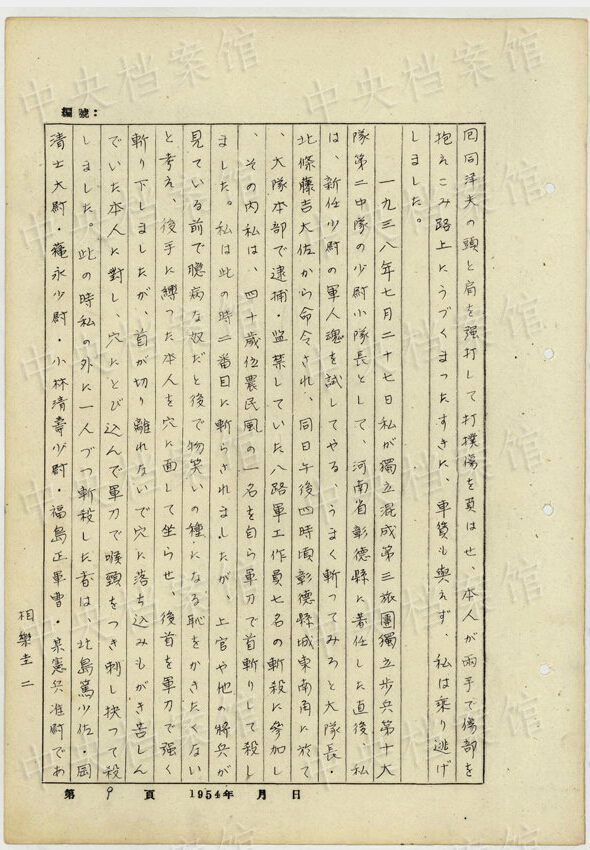 編號：
回同洋夫の頭と肩を强打して打撲傷を負はせ、本人が両手で傷部を
抱えこみ路上にうづくまつたすきに、車賃も與えず、私は乗り逃げ
しました。
一九三八年七月二十七日私が獨立混成第三旅團獨立歩兵第十大
隊第二中隊の少尉小隊長として、河南省彰德縣に着任した直後、私
は、新任少尉の軍人魂を試してやる、うまく斬つてみろと大隊長・
北條藤吉大佐から命令され、同日午後四時頃彰德縣城東南角に於て
、大隊本部で逮捕・監禁していた八路軍工作員七名の斬殺に參加し
、その内私は、四十歲位農民風の一名を自ら軍刀で首斬りして殺し
ました。私は此の時二番目に斬らされましたが、上官や他の將兵が
見ている前で臆病な奴だと後で物笑いの種になる恥をかきたくない
と考え、後手に縛つた本人を穴に面して坐らせ、後首を軍刀で强く
斬り下しましたが、首が切り離れないで穴に落ち込みもがき苦しん
でいた本人に對し、穴にとび込んで軍刀で喉頭をつき刺し抉つて殺
しました。此の時私の外に一人づつ斬殺した者は、北島篤少佐・岡
清士大尉・ 永少尉・小林清壽少尉・福島正軍曹・某憲兵准尉であ
相樂圭二
第 9 頁 1954年 月 日
中央档案馆